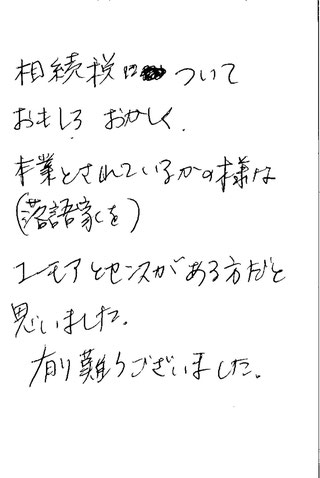 相続税について
おもしろ おかしく.
本業とされているかの様な
(落語家を)
ユーモアとセンスがある方だと
思いました。
有り難うございました。